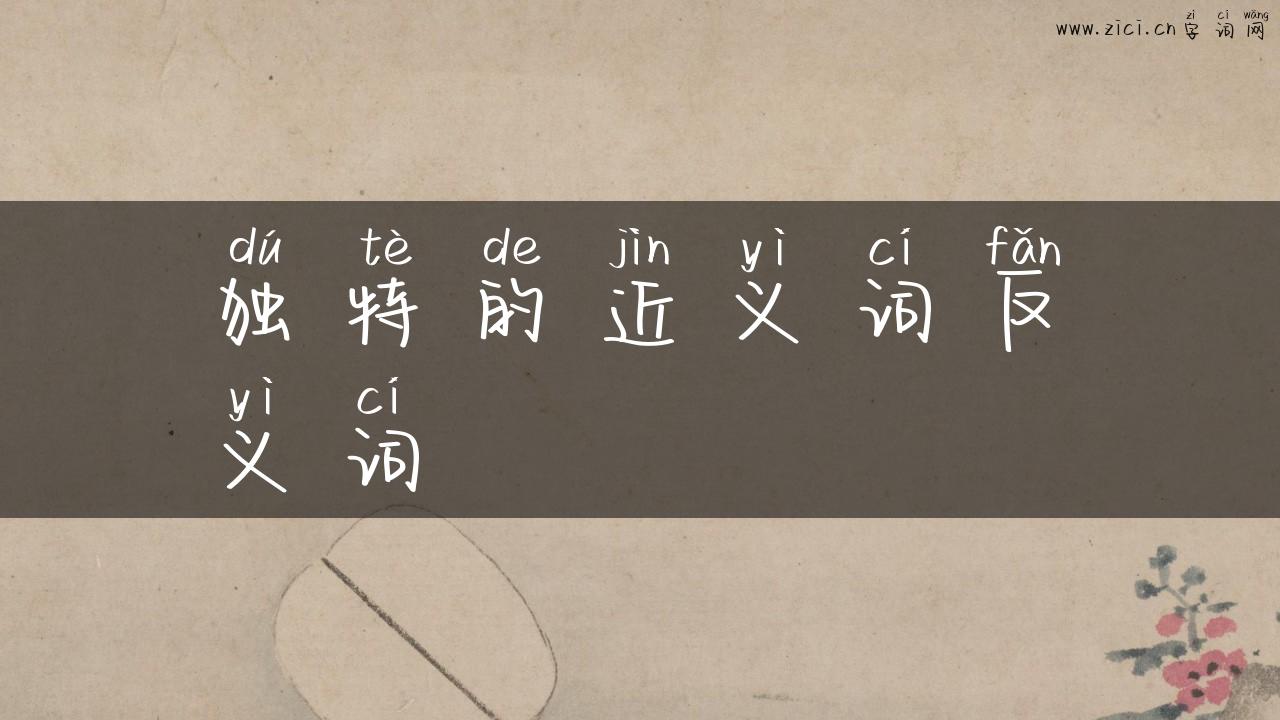 zì cí wǎng
www.zici.cn 字 词 网
dú tè de jìn yì cí fǎn
独 特 的 近 义 词 反
yì cí
义 词